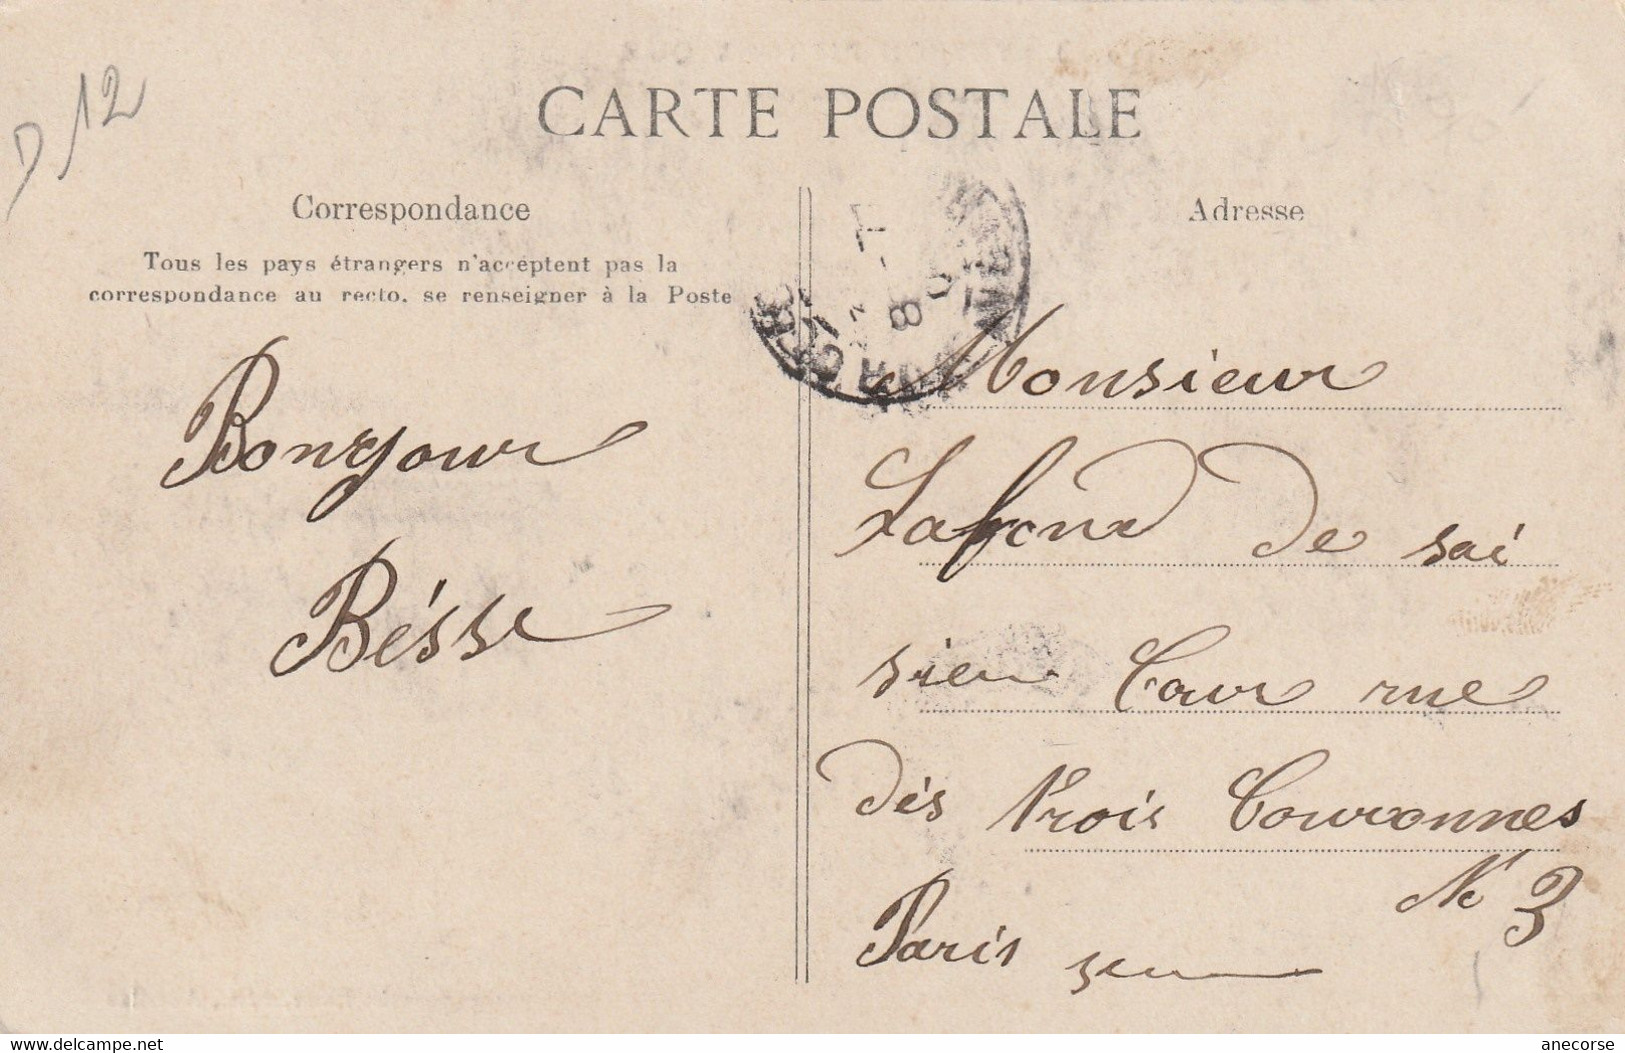 D 12
CARTE POSTALE
Correspondance
Tous les pays étrangers n'acceptent pas la
correspondance au recto, se renseigner à la Poste
Bonjour
Bésse
Adresse
Monsieur
Lafond de sai
sieu Cour rue
dés trois Couronnes
No 3
Paris
www.delcampe.net
anecorse